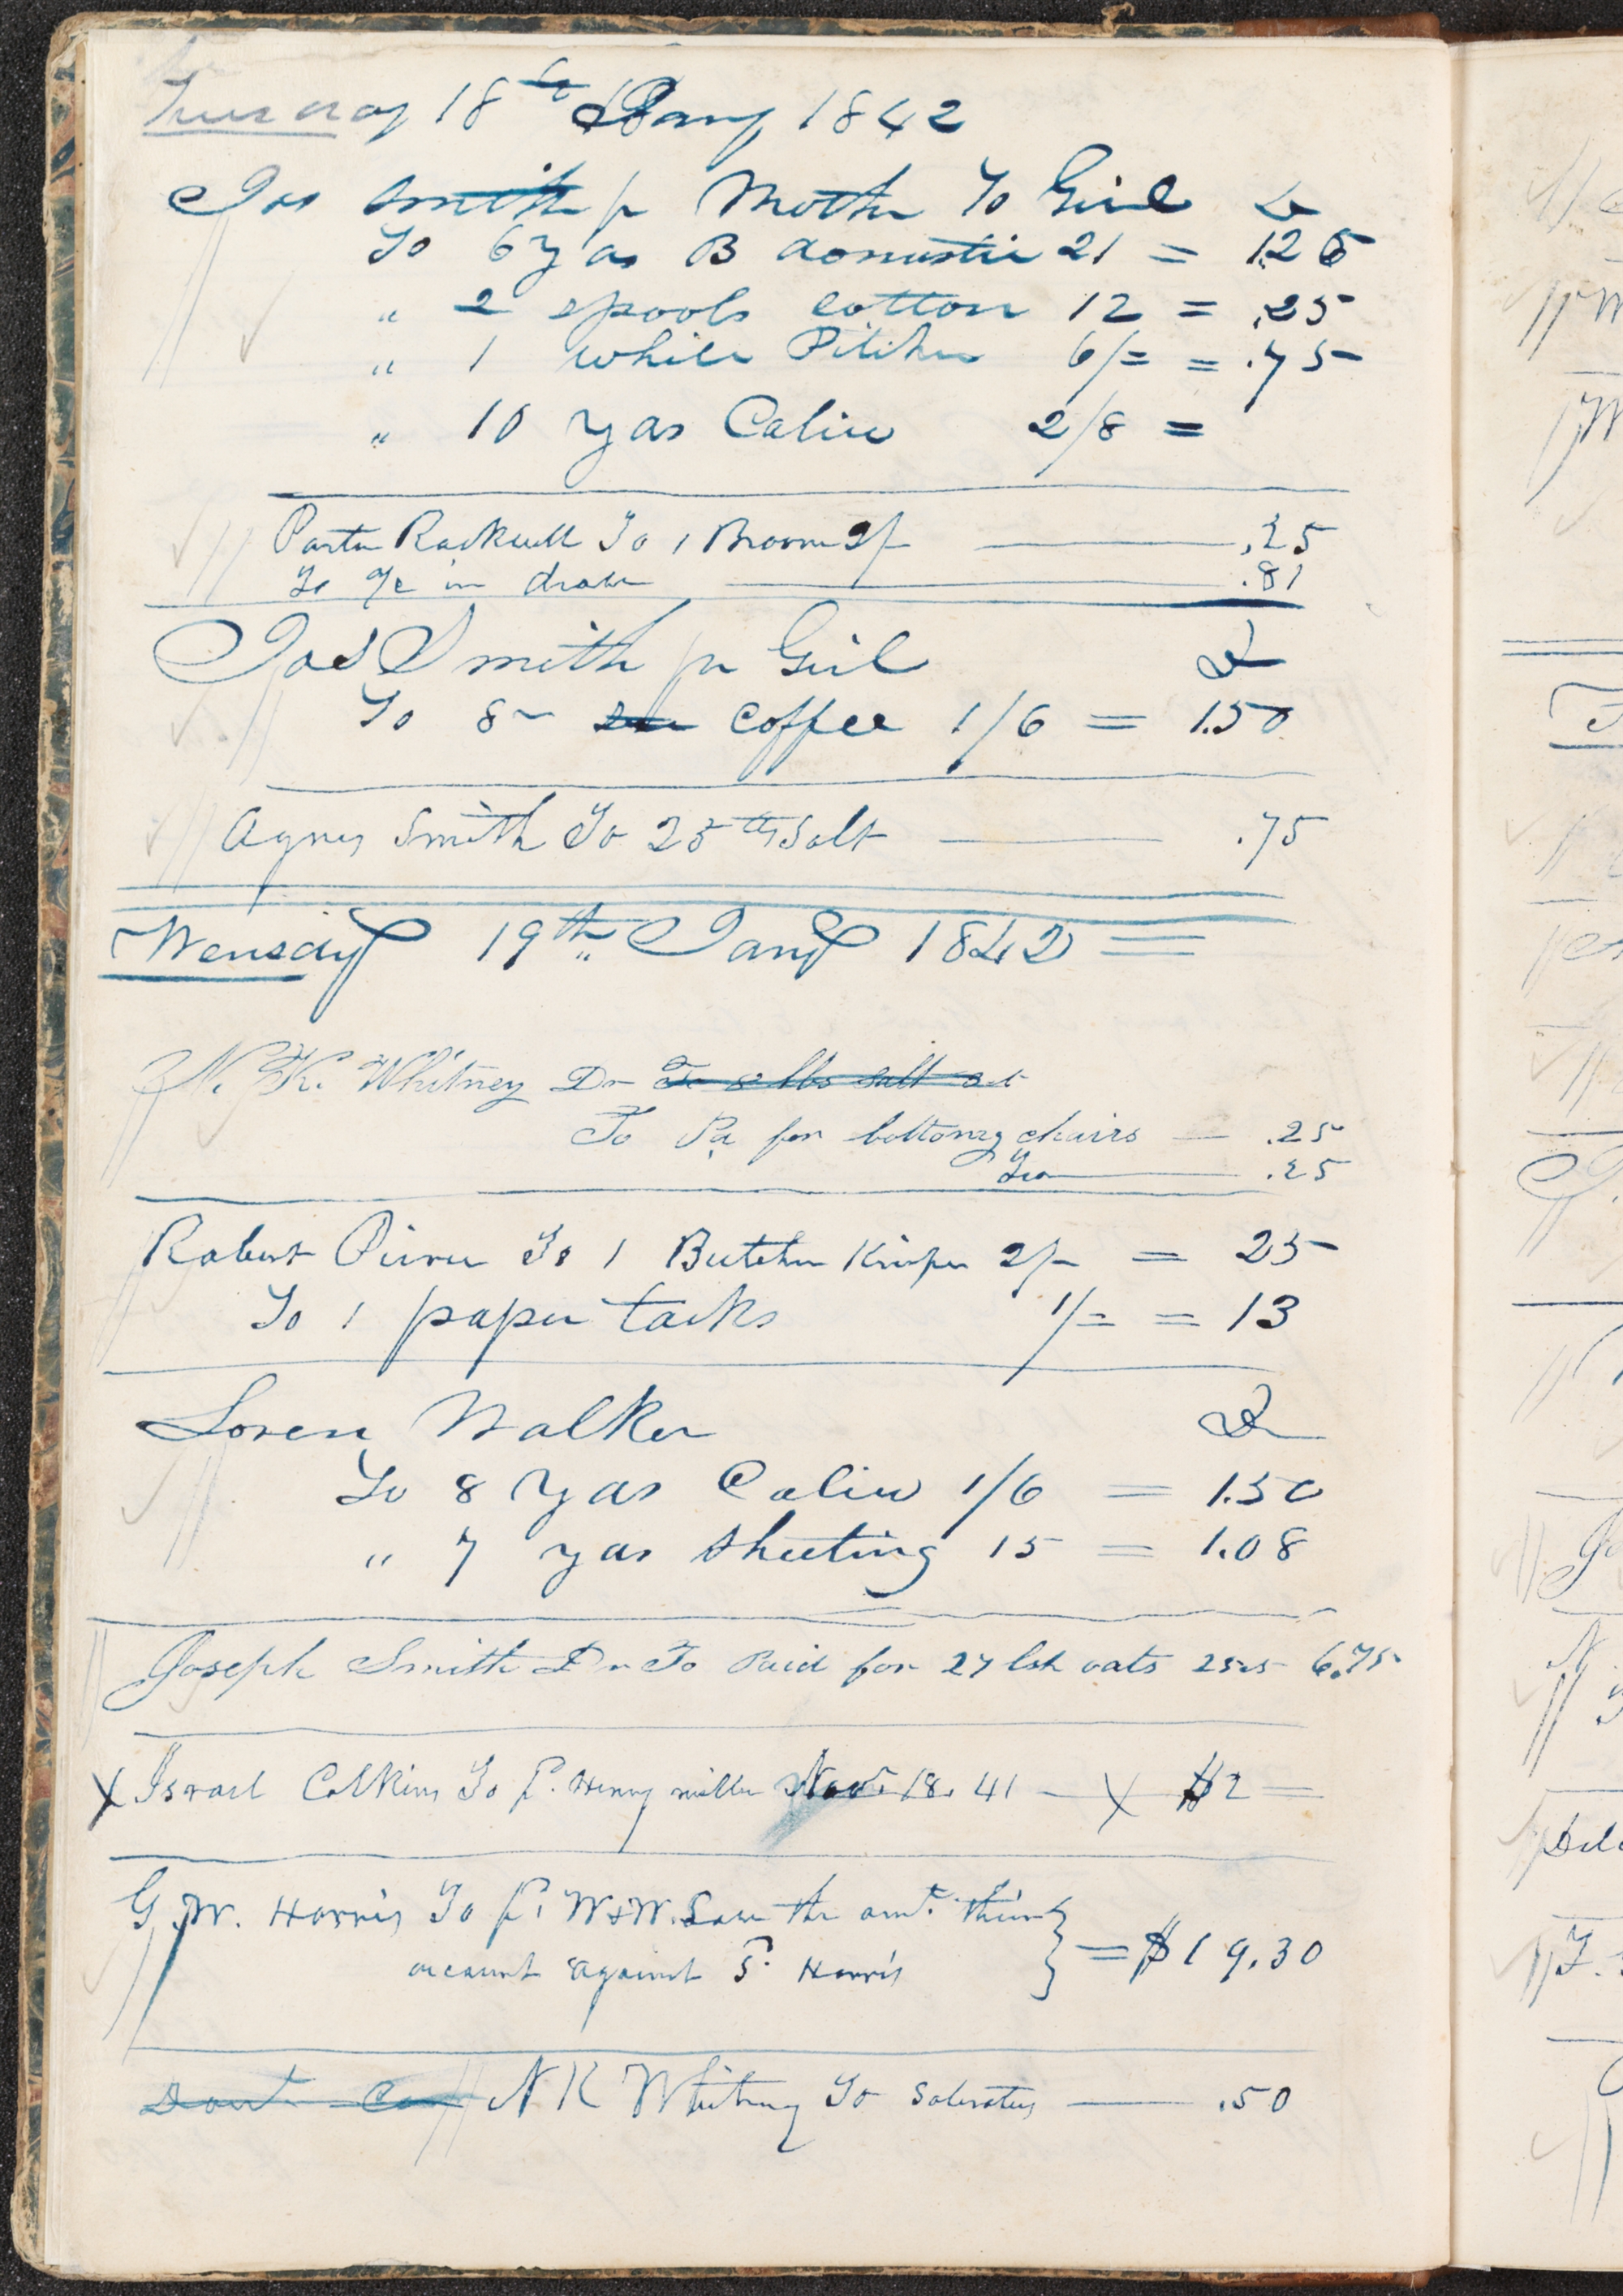 Tuesday 18th Jany 1842
Jos Smith pr Mother To Girl Dr
To 6 yds B domestic 21 = 1.26
" 2 spools cotton 12 = .25
" 1 white Pitcher 6/= = .75
" 10 yds Calico 2/8 =
Porter Rockwell To 1 Broom 2/- .25
To in draw .81
Jos Smith pr Girl Dr
To 8 coffee 1/6 = 1.50
Agnes Smith To 25 lbs Salt .75
Wensday 19th Jany 1842
N. K. Whitney Dr To 8 lbs salt at
To Pd for bottong chairs .25
.25
Robert Peirce To 1 Butcher Knife 2/- = 25
To 1 paper tacks 1/= = 13
Loren Walker Dr
To 8 yds Calico 1/6 = 1.50
" 7 yds Sheeting 15 = 1.08
Joseph Smith Dr To Paid for 27 bsh oats 25 6.75
X Israel Calkins To P. Henry miller Novr. 18. 41 - X $2 =
G. W. Harris To P. W & W. Law the amt. their
account against G. Harris } = $19.30
N K Whitney To Saleratus .50